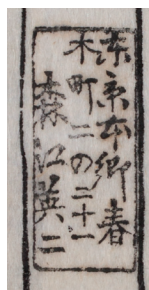 東京本郷春
木町二の二十一
森江英二